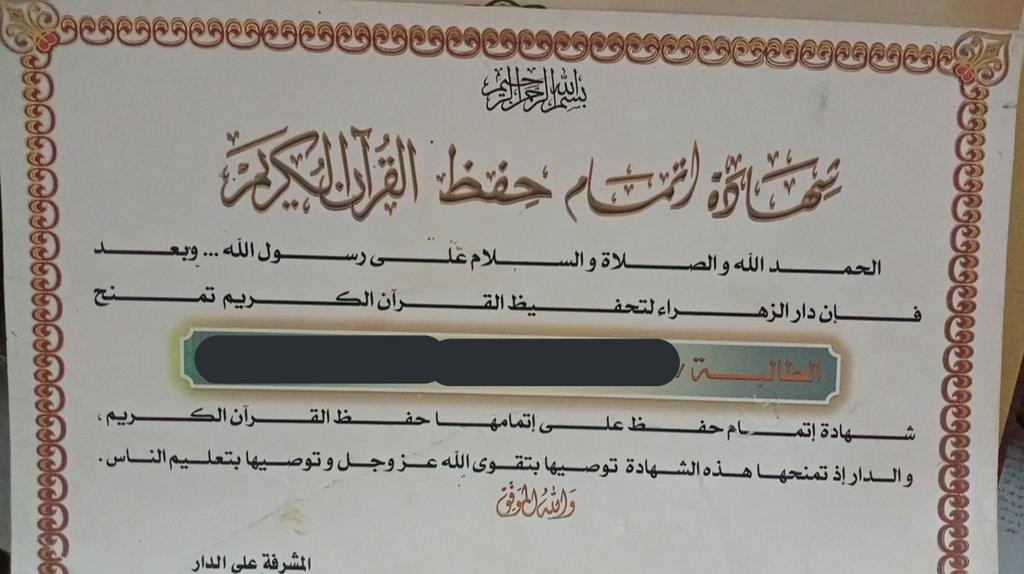 بسم الله الرحمن الرحيم
شهادة اتمام حفظ القرآن الكريم
الحمد الله والصلاة والسلام على رسول الله ... وبعد
فإن دار الزهراء لتحفيظ القرآن الكريم تمنح
الطالبة /
شهادة إتمام حفظ على إتمامها حفظ القرآن الكريم ،
والدار إذ تمنحها هذه الشهادة توصيها بتقوى الله عز وجل و توصيها بتعليم الناس .
والله الموفق
المشرفة على الدار